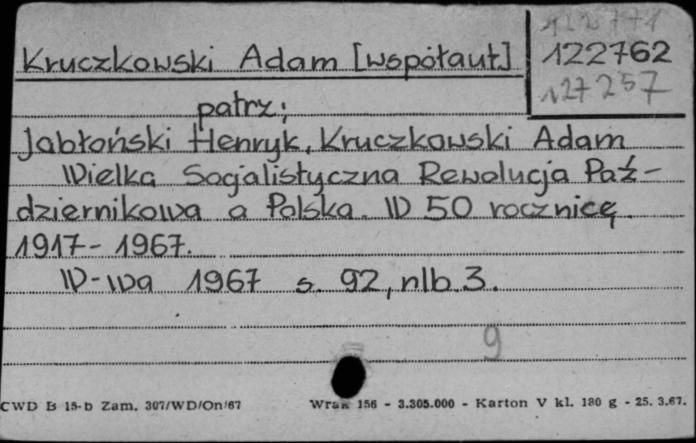 122771
Kruczkowski Adam [współaut.]
122762
127257
patrz:
Jabłoński Henryk, Kruczkowski Adam
Wielka Socjalistyczna Rewolucja Paź-
dziernikowa a Polska. W 50 rocznicę.
1917-1967.
W-wa 1967 s. 92, nlb 3.
9
CWD B 15-b Zam. 307/WD/On/67 Wrak 156 - 3.305.000 - Karton V kl. 180 g - 25. 3.67.